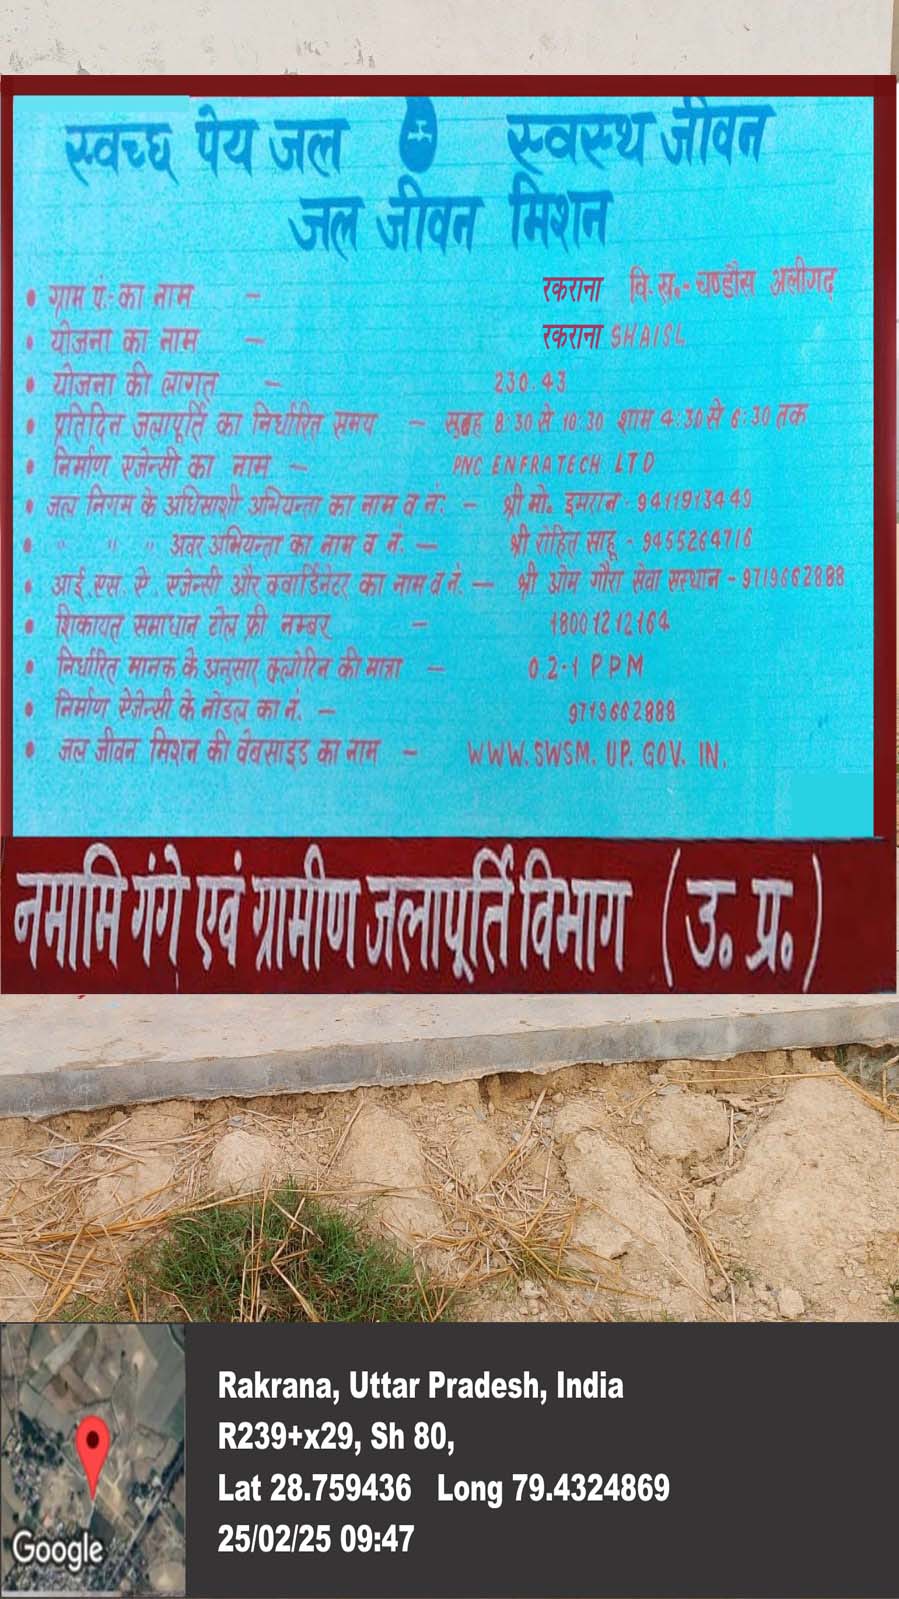 स्वच्छ पेय जल स्वस्थ जीवन
जल जीवन मिशन
• ग्राम पं:- का नाम - रकराना वि. ख.- चण्डौस अलीगढ़
• योजना का नाम - रकराना SHAISL
• योजना की लागत - 230.43
• प्रतिदिन जलापूर्ति का निर्धारित समय - सुबह 8:30 से 10:30 शाम 4:30 से 6:30 तक
• निर्माण एजेन्सी का नाम - PNC ENFRATECH LTD
• जल निगम के अधिसाशी अभियन्ता का नाम व नं: - श्री मो. इमरान - 9411913449
• " " " अवर अभियन्ता का नाम व नं. - श्री रोहित साहू - 9455264716
• आई.एस. ऐ. एजेन्सी और क्वार्डिनेटर का नाम व नं. - श्री ओम गौरा सेवा संस्थान - 9719662888
• शिकायत समाधान टोल फ्री नम्बर - 18001212164
• निर्धारित मानक के अनुसार क्लोरिन की मात्रा - 0.2-1 PPM
• निर्माण ऐजेन्सी के नोडल का नं. - 9719662888
• जल जीवन मिशन की वेबसाइड का नाम - WWW.SWSM.UP.GOV.IN.
नमामि गंगे एवं ग्रामीण जलापूर्ति विभाग (उ.प्र.)
Rakrana, Uttar Pradesh, India
R239+x29, Sh 80,
Lat 28.759436 Long 79.4324869
25/02/25 09:47
Google